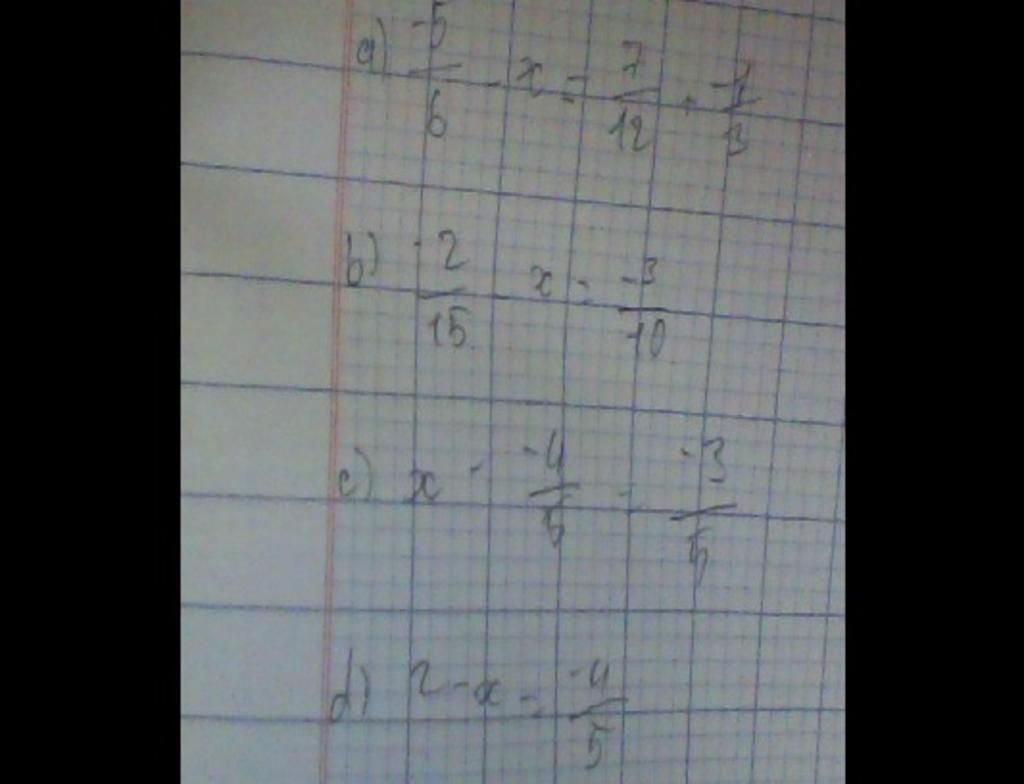 a) -5/6 - x = 7/12 + -1/3
b) -2/15 - x = -3/10
c) x - -4/5 = -3/5
d) 2 - x = -4/5